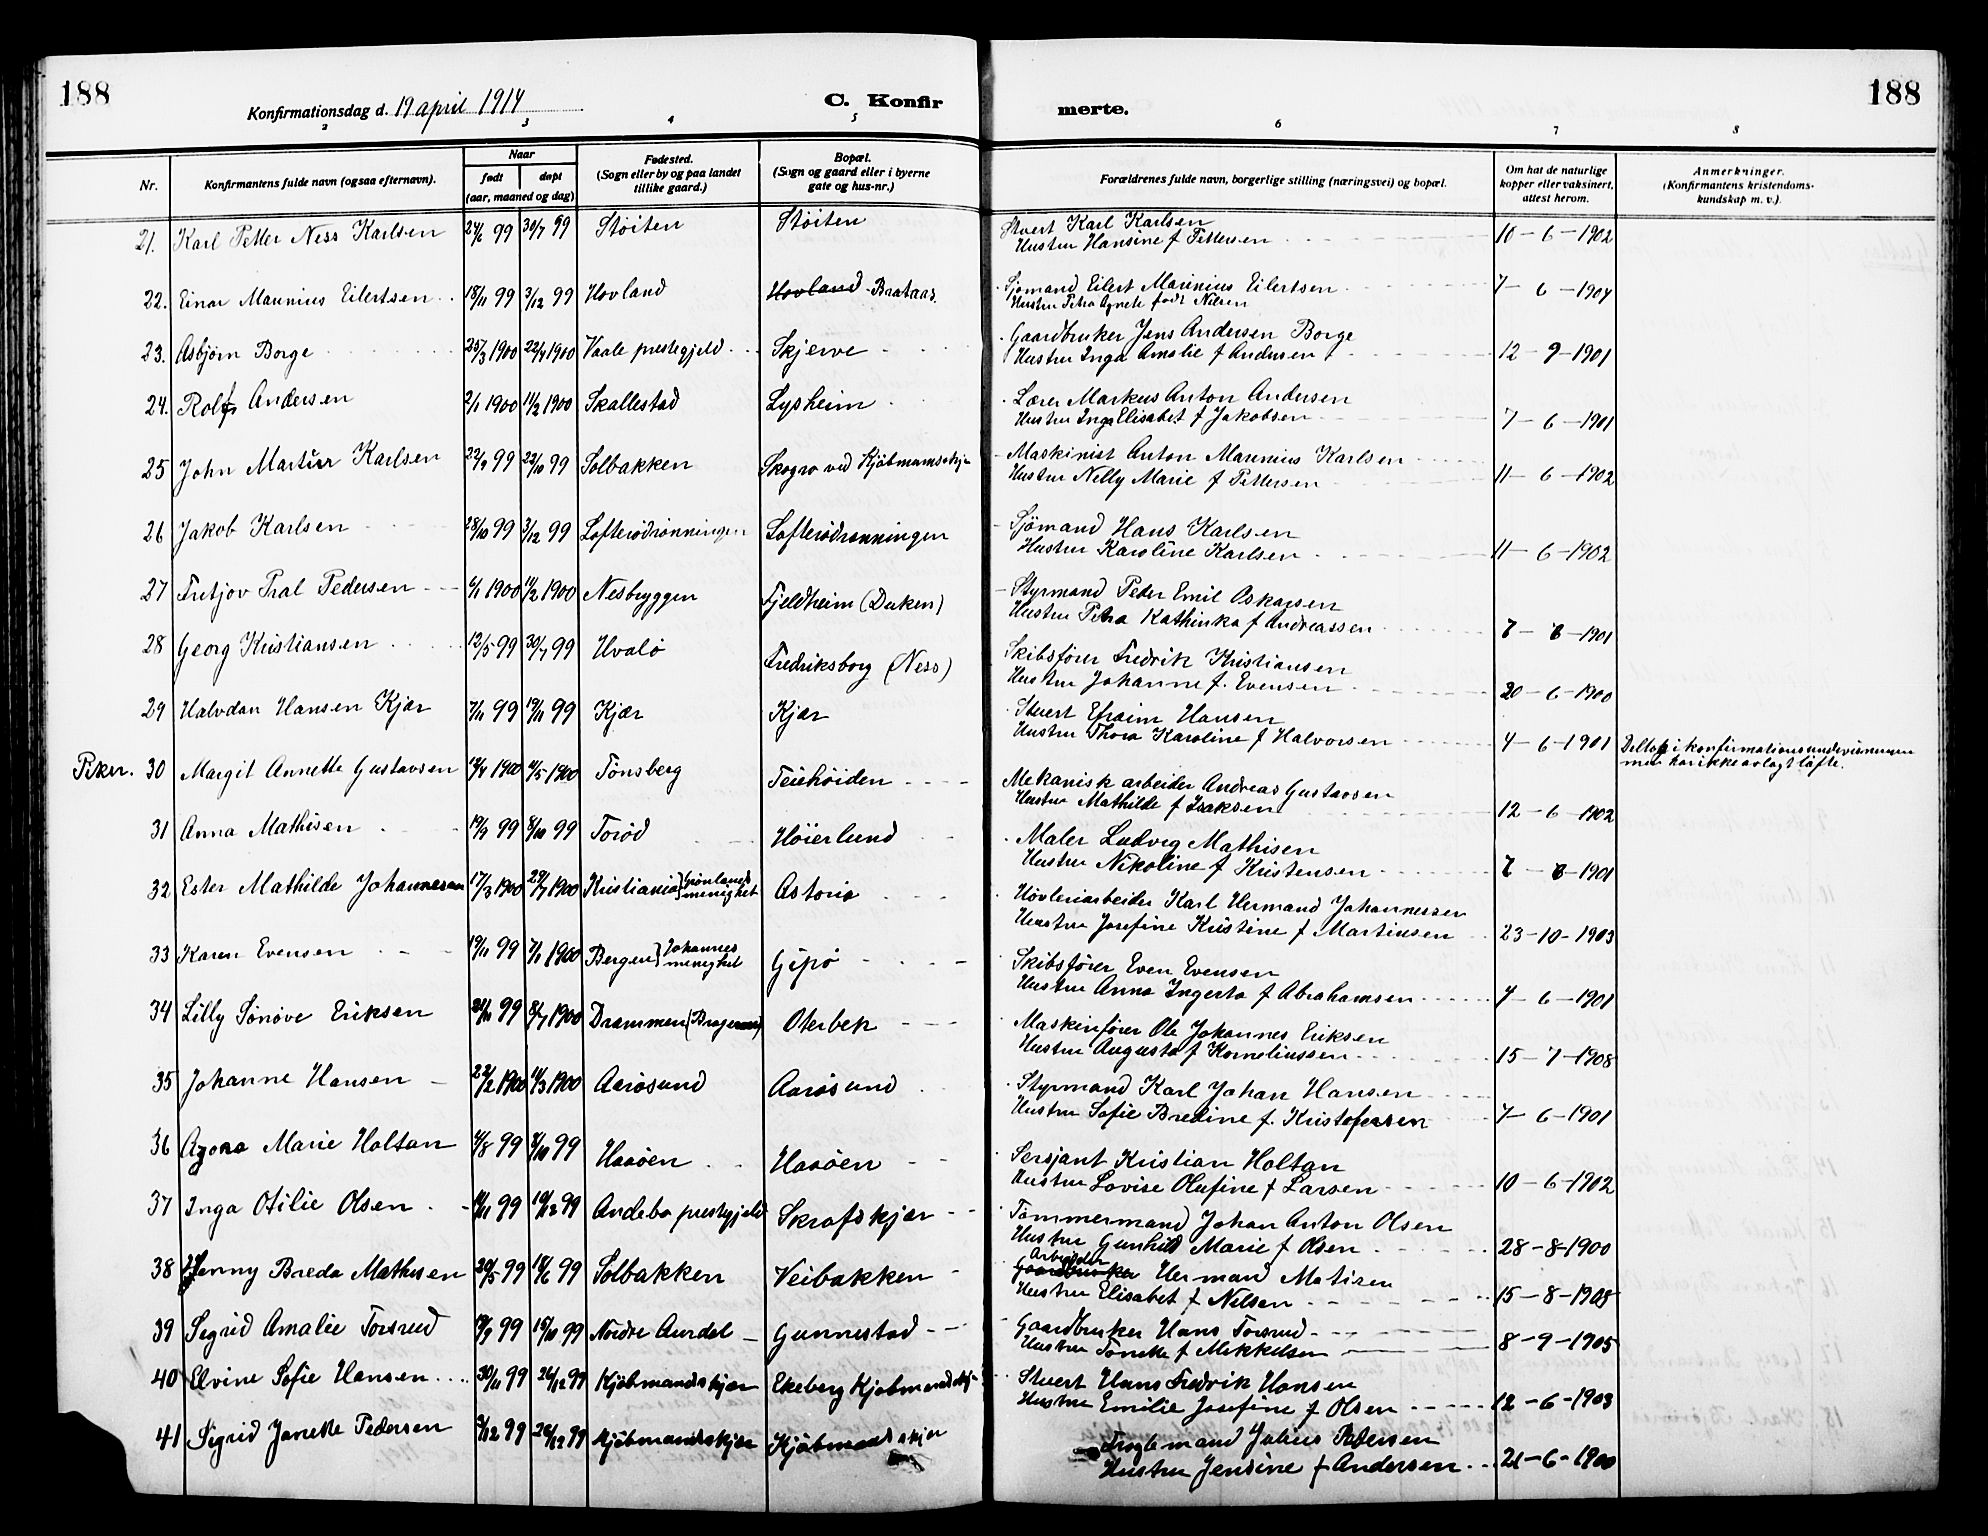 188
Konfirmationsdag d. 19 april 1914
C. Konfir
merte.
188
2 3 4 5 6 7 8
Nr.
Konfirmantens fulde navn (ogsaa efternavn).
Naar
født
døpt
(aar, maaned og dag)
Fødested.
(Sogn eller by og paa landet
tillike gaard.)
Bopæl.
(Sogn og gaard eller i byerne
gate og hus-nr.)
Forældrenes fulde navn, borgerlige stilling (næringsvei) og bopæl.
Om hat de naturlige
kopper eller vaksinert,
attest herom.
Anmerkninger.
(Konfirmantens kristendoms-
kundskap m. v.).
21. Karl Petter Ness Karlsen 24/6 99 30/7 99 Støiten Støiten Stuert Karl Karlsen
Hustru Hansine f Pettersen 10-6-1902
22. Einar Maurinius Eilertsen 18/11 99 3/12 99 Hovland Hovland Brataas. Sjømand Eilert Marinius Eilertsen
Hustru Petra Agnete født Nilsen 7-6-1904
23. Asbjørn Borge 25/3 1900 22/4 1900 Vaale prestegjeld Skjerve Gaardbruker Jens Andersen Borge
Hustru Inga Amalie f Andersen 12-9-1901
24. Rolf Andersen 2/1 1900 11/2 1900 Skallestad Lysheim Lærer Markus Anton Andersen
Hustru Inga Elisabet f Jakobsen 7-6-1901
25 John Martin Karlsen 22/9 99 22/10 99 Solbakken Skogro ved Kjøbmannsskj Maskinist Anton Maurinius Karlsen
Hustru Nelly Marie f Pettersen 11-6-1902
26 Jakob Karlsen 28/10 99 3/12 99 Lofterødrønningen Lofterødrønningen Sjømand Hans Karlsen
Hustru Karoline Karlsen 11-6-1902
27 Fritjov Pedersen 6/1 1900 11/2 1900 Nesbryggen Fjeldheim (Duken) Styrmand Peder Emil Oskarsen
Hustru Petra Kathinka f Andreassen 7-6-1901
28 Georg Kristiansen 12/5 99 30/7 99 Hvalø Fredriksborg (Ness) Skibsfører Fredrik Kristiansen
Hustru Johanne f. Evensen 20-6-1900
29 Halvdan Hansen Kjær 7/11 99 19/11 99 Kjær Kjær Stuert Efraim Hansen
Hustru Thora Karoline f Halvorsen 4-6-1901 Deltok i konfirmationsundervisningen
men har ikke avlagt løfte.
30 Margit Annette Gustavsen Tønsberg Teiehøiden Mekanisk arbeider Andreas Gustavsen
Hustru Mathilde f Isaksen 12-6-1902
31 Anna Mathisen 19/9 99 8/10 99 Torød Høierlund Maler Ludvig Mathisen
Hustru Nikoline f Kristensen 7-6-1901
32 Ester Mathilde Johannessen 17/3 1900 29/7 1900 Kristiania Grønlands
menighet Astoria Høvleriarbeider Karl Hermand Johannessen
Hustru Josefine Kristine f Martinsen 23-10-1903
33 Karen Evensen 19/11 99 7/1 1900 Bergen Johannes
menighet Gipø Skibsfører Even Evensen
Hustru Anna Ingerta f Abrahamsen 4-6-1901
34 Lilly Sønøve Eriksen 99 8/7 1900 Drammen (Bragernes) Oterbek Maskinfører Ole Johannes Eriksen
Hustru Augusta f Korneliussen 15-7-1908
35 Johanne Hansen 22/2 1900 11/3 1900 Aarøsund Aarøsund Styrmand Karl Johan Hansen
Hustru Sofie Bredine f. Kristofersen 7-6-1901
36 Agona Marie Holtan 4/8 99 8/10 99 Haaøen Haaøen Sersjant Kristian Holtan
Hustru Lovise Olufine f Larsen 10-6-1902
37 Inga Otilie Olsen 11/11 99 10/12 99 Andebo prestegjeld Skrafskjær Tømmermand Johan Anton Olsen
Hustru Gunhild Marie f Olsen 28-8-1900
38 Jenny Breda Mathisen 20/5 99 18/6 99 Solbakken Veibakken Arbeider
Gaardbruker Herman Matisen
Hustru Elisabet f Nilsen 15-8-1908
39 Sigrid Amalie Torsrud 99 15/10 99 Nordre Aurdal Gunnestad Gaardbruker Hans Torsrud
Hustru Tonette f Mekkelsen 8-9-1905
40 Elvine Sofie Hansen 30/11 99 26/12 99 Kjøbmandsskjær Ekeberg Kjøbmandsskj Stuert Hans Fredrik Hansen
Hustru Emilie Josefine f Olsen 12-6-1903
41 Sigrid Janette Pedersen 3/12 99 26/12 99 Kjøbmandsskjær Kjøbmandsskjær Julius Pedersen
Hustru Jensine f Andersen 21-6-1900